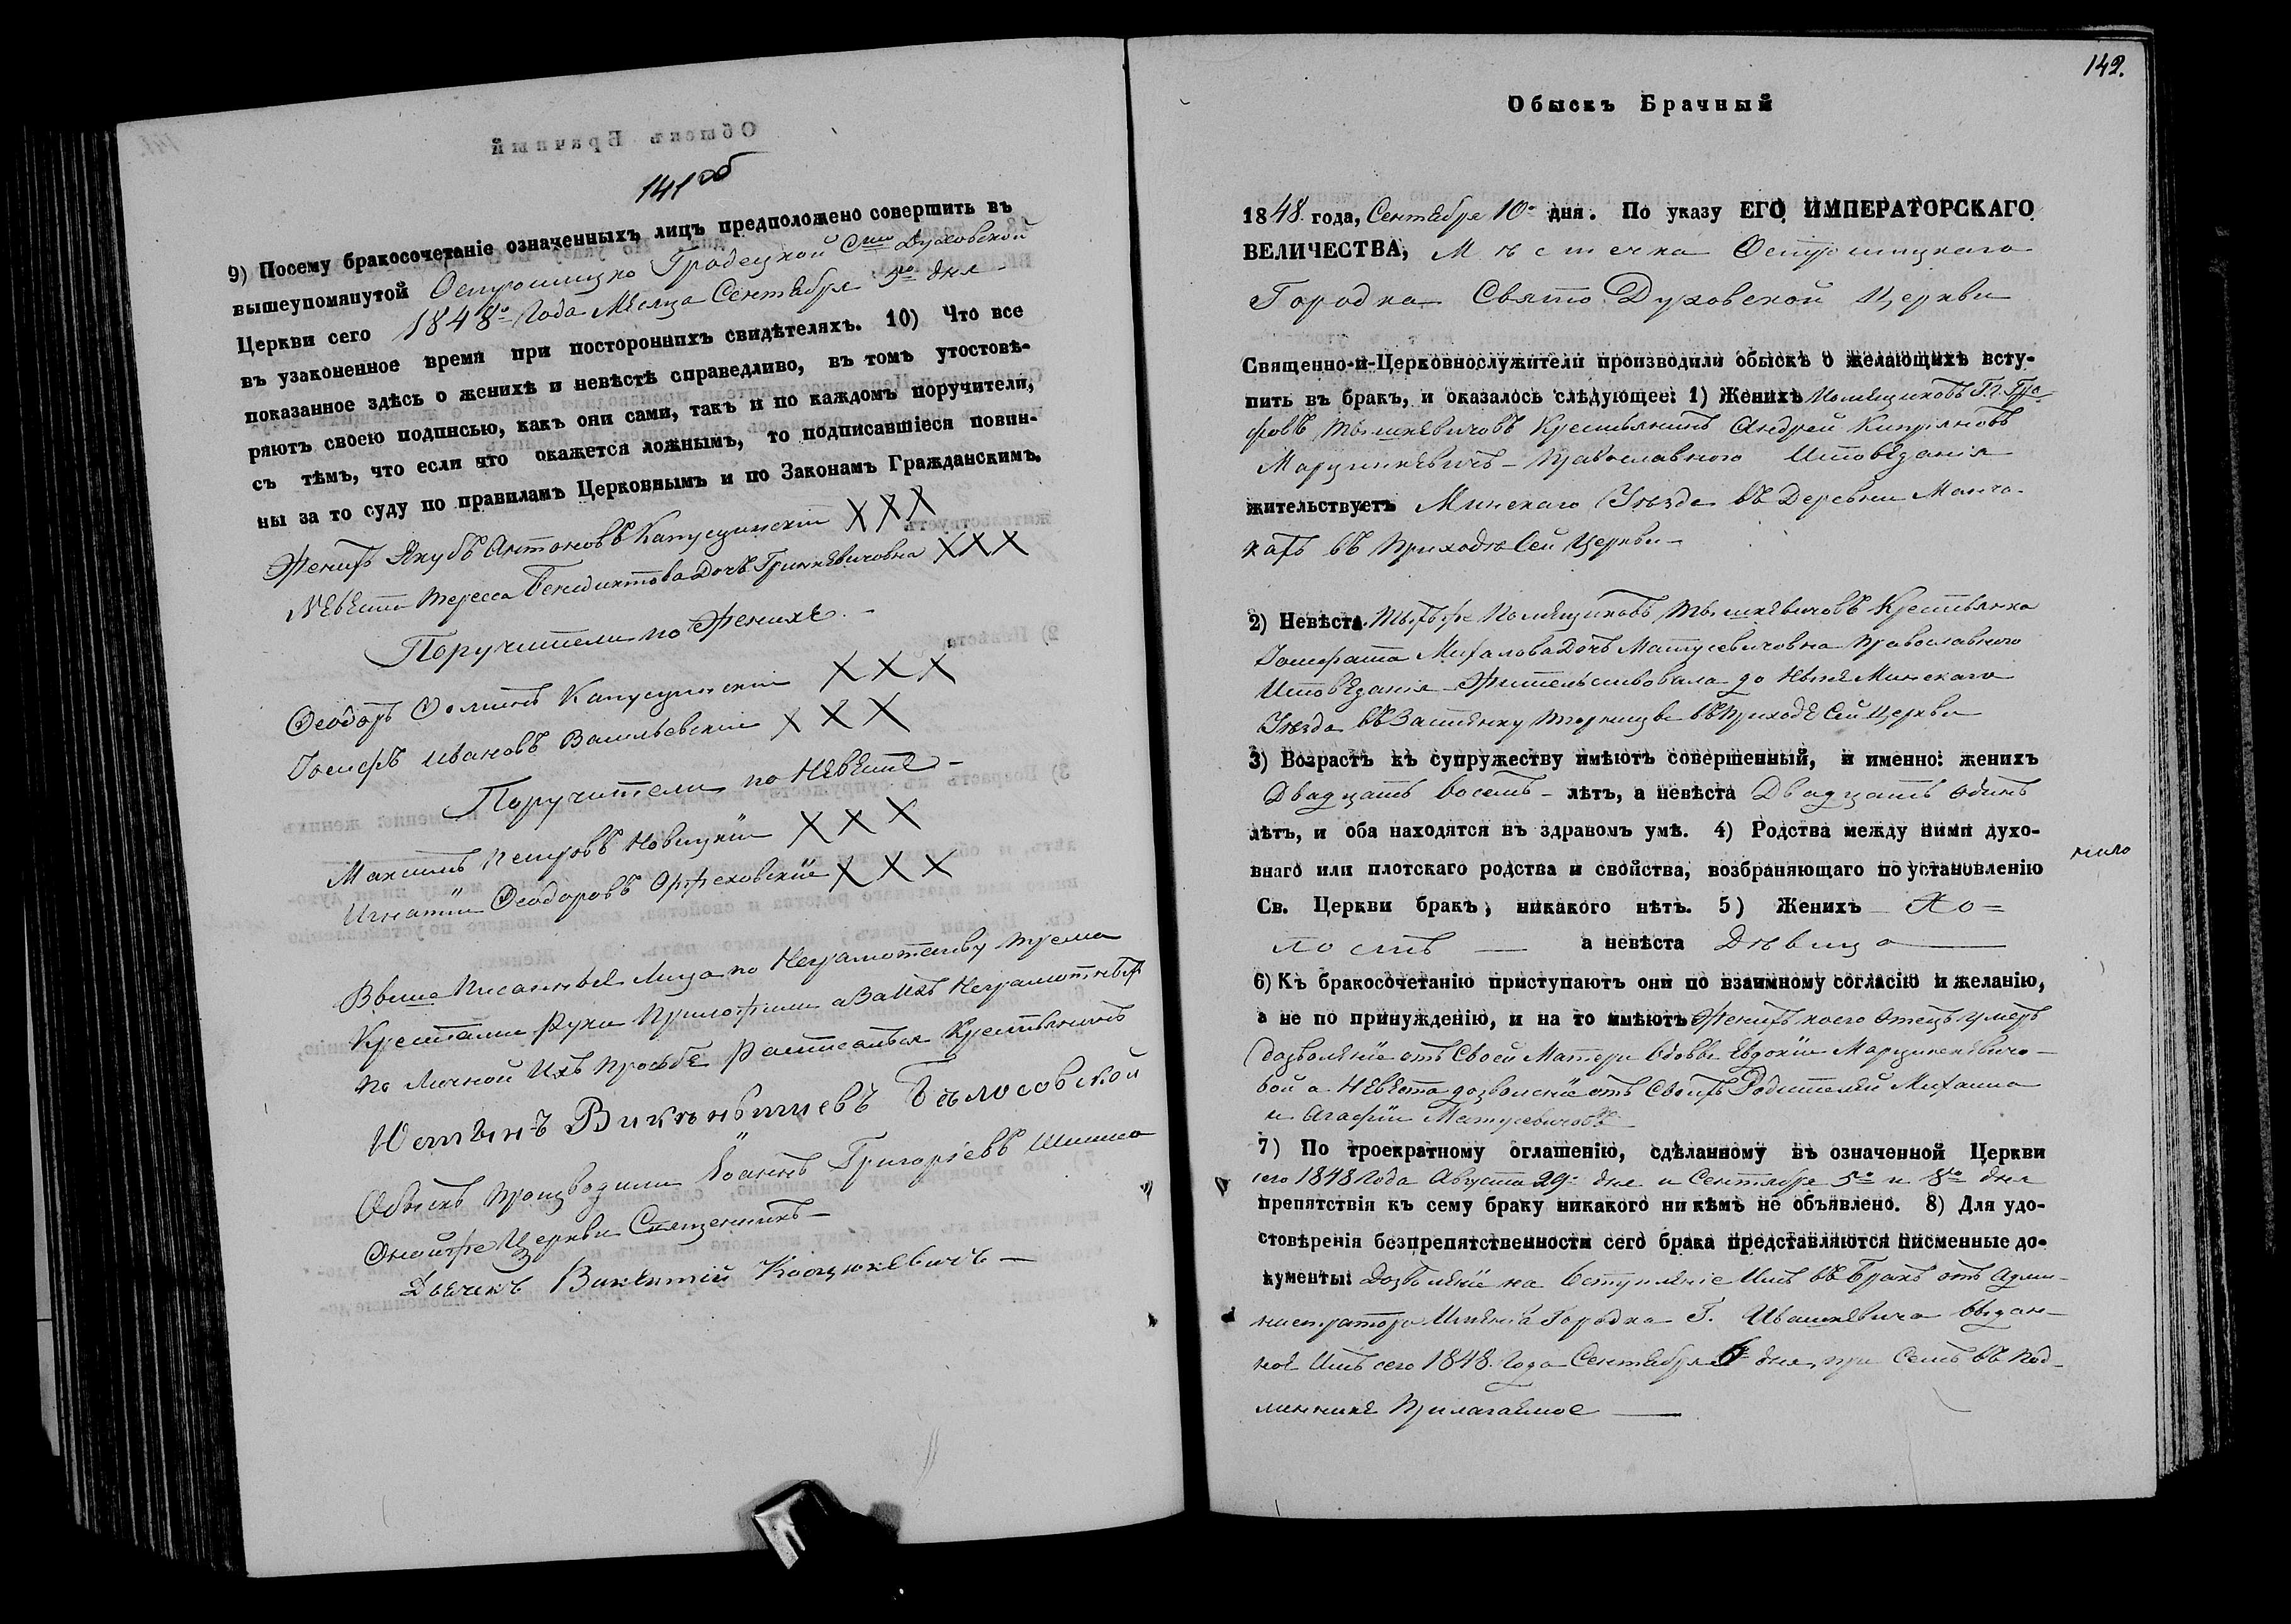 141 об
9) Посему бракосочетаніе означенныхъ лицъ предположено совершить въ
вышеупомянутой Острошицко Градецкой Свто Духовской
Церкви сего 1848го Года Месяца Сентября 5го дня
въ узаконенное время при постороннихъ свидѣтеляхъ. 10) Что все
показанное здѣсь о женихѣ и невѣстѣ справедливо, въ томъ утостовѣ-
ряютъ своею подписью, какъ они сами, такъ и по каждомъ поручители,
съ тѣмъ, что если что окажется ложнымъ, то подписавшіеся повин-
ны за то суду по правиламъ Церковнымъ и по Законамъ Гражданскимъ.
Женихъ Якубъ Антоновъ Капусцинскій ХХХ
Невеста Тересса Бенидиктова Дочь Гринкевичовна ХХХ
Поручители по Женихе
Феодоръ Фоминъ Капусцинскій ХХХ
Іосифъ Ивановъ Васильевскій ХХХ
Поручители по Невесте
Максимъ Петровъ Новицкій ХХХ
Игнатій Феодоровъ Оржеховскій ХХХ
Выше Писанные Лица по Неграмотству трема
Крестами Руки Приложили а За Ихъ Неграмотныхъ
по Личной Ихъ Прозьбе Росписался Крестьянинъ
Юстынъ Викеньтиевъ Белосовской
Обыскъ производили Іоаннъ Григоріевъ Шишло
Оной же Церкви Священникъ
Дьячекъ Викентій Костюкевичъ
142.
Обыскъ Брачный
1848 года, Сентября 10го дня. По указу ЕГО ИМПЕРАТОРСКАГО
ВЕЛИЧЕСТВА, Мѣстечка Острошицкаго
Городка Свято Духовской Церкви
Священно-и-Церковнослужители производили обыскъ о желающихъ всту-
пить въ бракъ, и оказалось слѣдующее: 1) Женихъ Помещиковъ Г.г. Гра-
фовъ Тышкевичовъ Крестьянинъ Андрей Кипріяновъ
Марцинкевичъ Православного Исповеданія
жительствуетъ Минскаго Уезда въ Деревни Манча-
кахъ въ Приходе Сей Церкви
2) Невѣста Тыхъ же Помещиковъ Тышкевичовъ Крестьянка
Іосифата Михалова Дочь Матусевичовна Православного
Исповеданія Жительствовала до Ныне Минскаго
Уезда въ Застенку въ Приходе Сей Церкви
3) Возрастъ къ супружеству имѣютъ совершенный, и именно: женихъ
Двадцать восемь лѣтъ, а невѣста Двадцать одинъ
лѣтъ, и оба находятся въ здравомъ умѣ. 4) Родства между ними духо-
внаго или плотскаго родства и свойства, возбраняющаго по установленію
Св. Церкви бракъ, никакого нѣтъ. 5) Женихъ Хо=
лостъ а невѣста Дѣвица
6) Къ бракосочетанію приступаютъ они по взаимному согласію и желанію,
а не по принужденію, и на то имѣютъ Женихъ коего отецъ умеръ
дозволеніе отъ Своей Матери Вдовы Евдокіи Марцинкевичо-
вой а Невеста дозволеніе отъ Своихъ Родителей Михаила
и Агафіи Матусевичовъ
7) По троекратному оглашенію, сдѣланному въ означенной Церкви
сего 1848 Года Августа 29го дня и Сентября 5го и 8го дня
препятствія къ сему браку никакого никѣмъ не объявлено. 8) Для удо-
стовѣренія безпрепятственности сего брака представляются писменные до-
кументы: Дозволеніе на Вступленіе Имъ въ Бракъ отъ Адми-
нистратора Именія Городка Г. Ивашкевича выдан-
ное Имъ сего 1848 Года Сентября 6го дня, при Семъ въ Под-
линнике Прилагаемое